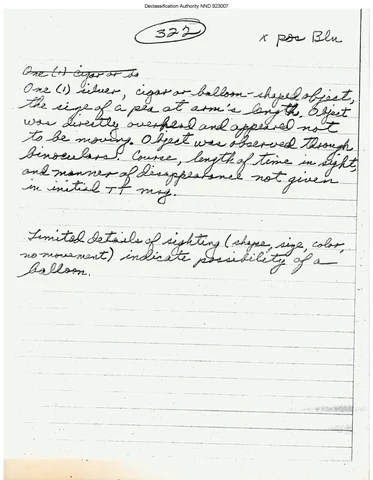 Declassification Authority NND 923007
322
x pos Bln
One (1) cigar or ba
One (1) silver, cigar or balloon-shaped object,
the size of a pea at arm's length. Object
was directly overhead and appeared not
to be moving. Object was observed through
binoculars. Course, length of time in sight,
and manner of disappearance not given
in initial TT msg.
Limited details of sighting (shape, size, color,
no movement) indicate possibility of a
balloon.